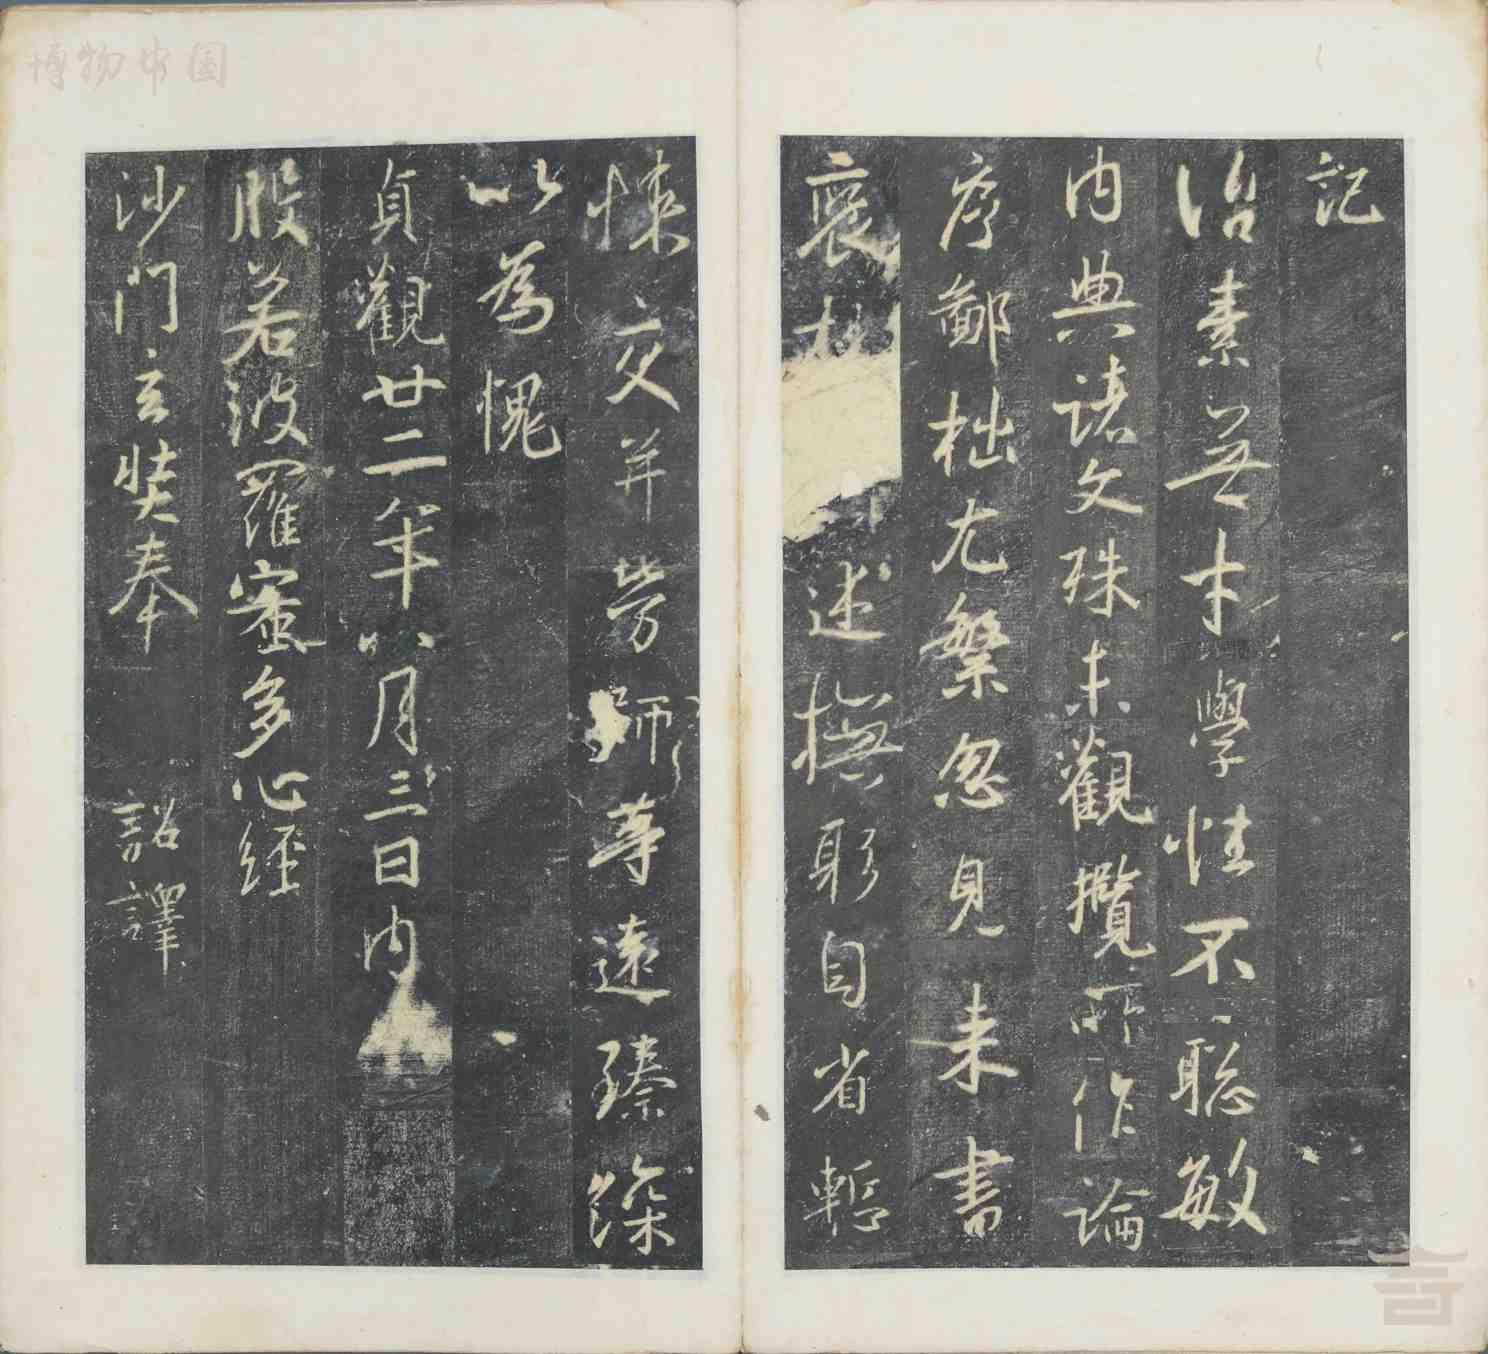 記
治素無才學性不聰敏
内典諸文殊未觀攬所作論
序鄙拙尤繁忽見来書
褒 述撫躬自省慙
悚交并勞師等遠臻深
以為愧
貞觀廿二年八月三日内
般若波羅蜜多心經
沙門玄奘奉 詔譯
博物中国